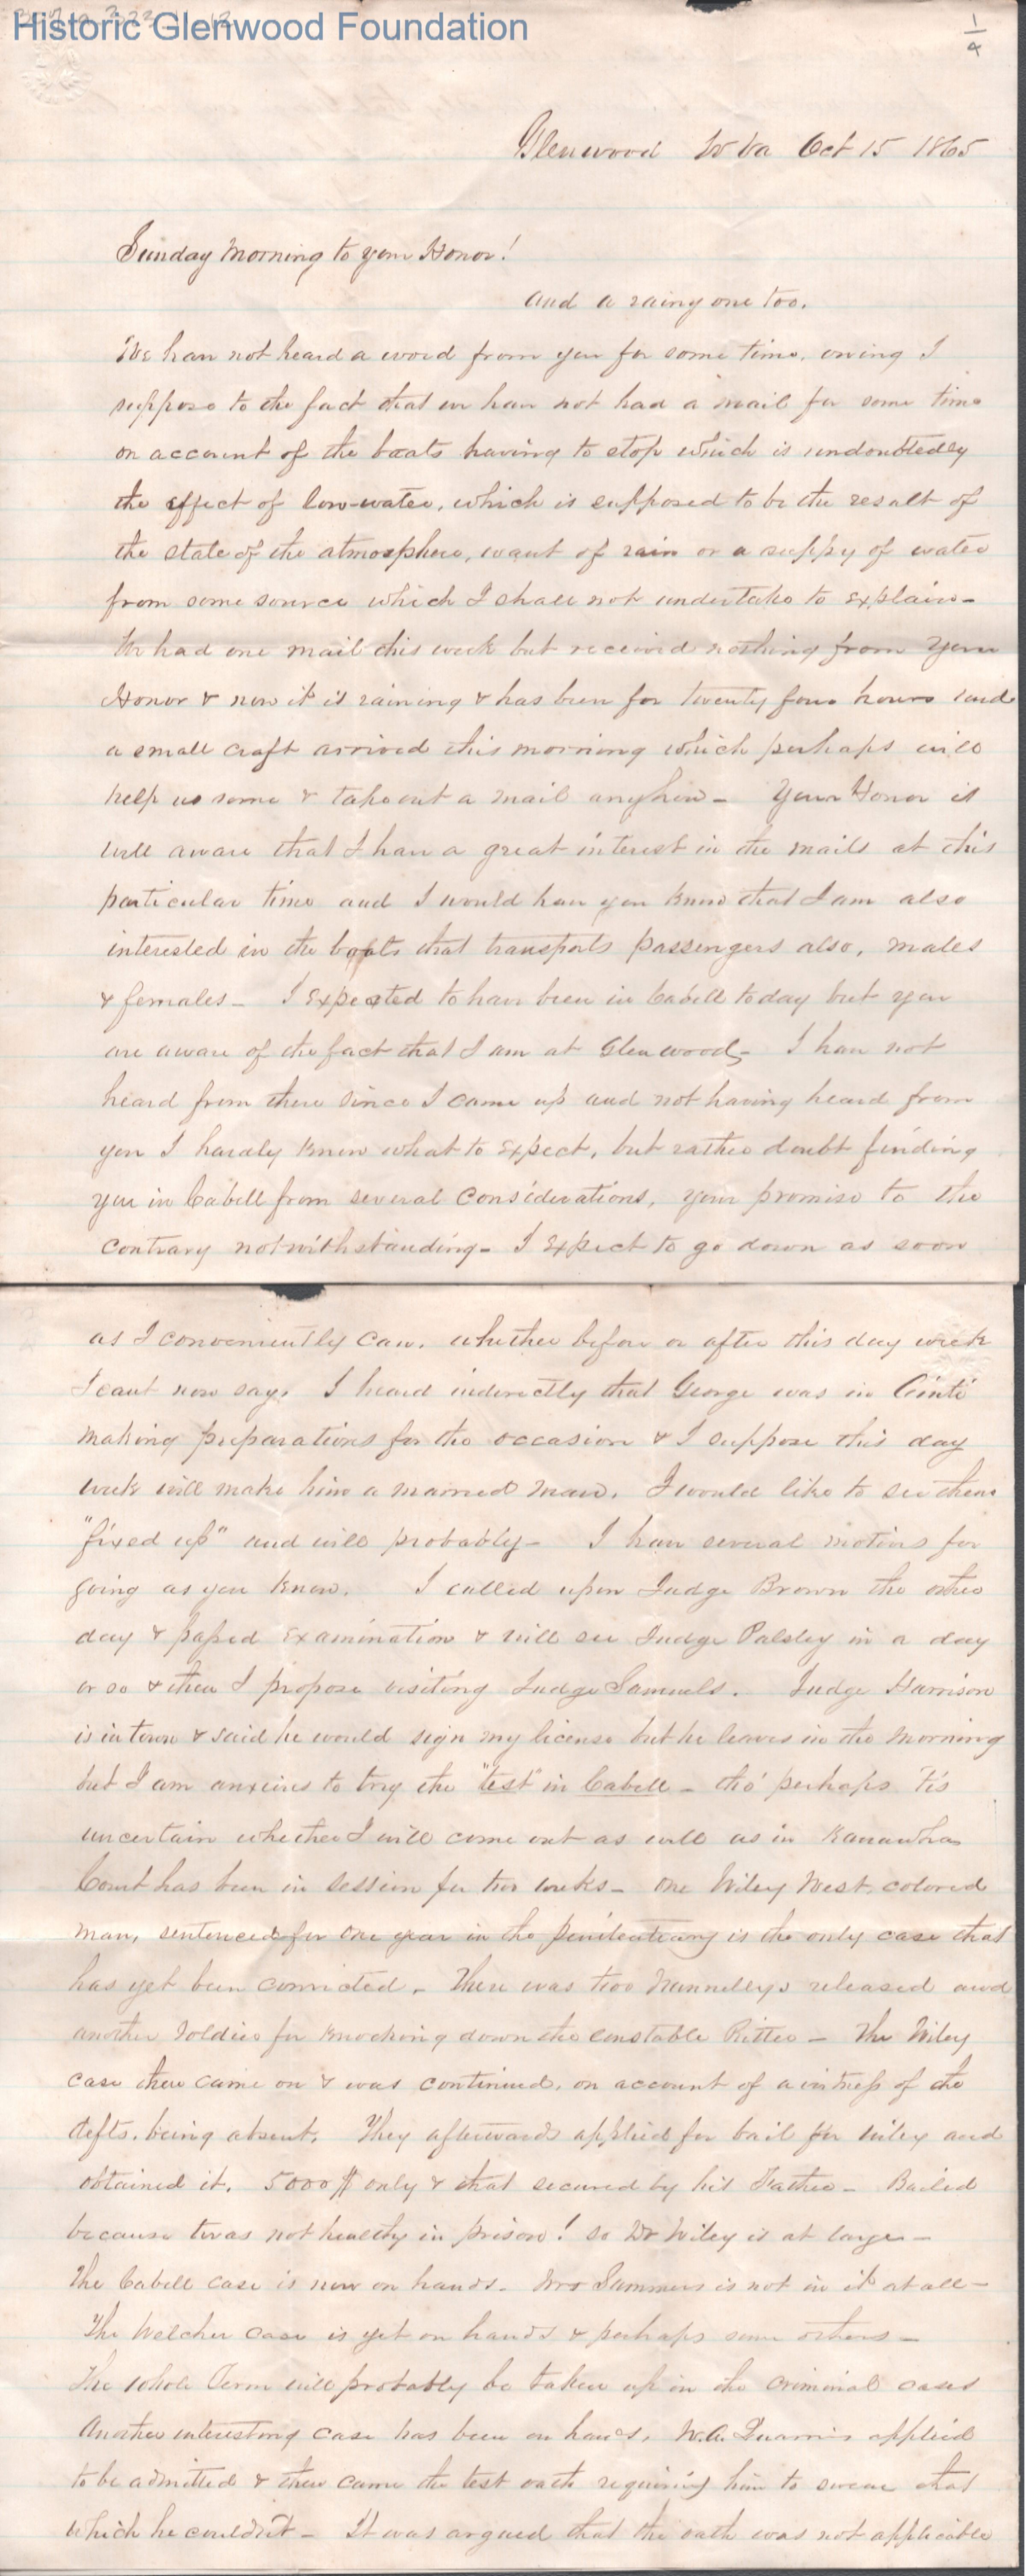 Historic Glenwood Foundation
1/4
Glenwood W Va Oct 15 1865
Sunday Morning to your Honor!
and a rainy one too.
We have not heard a word from you for some time, owing I
suppose to the fact that we have not had a mail for some time
on account of the boats having to stop which is undoubtedly
the effect of low-water, which is supposed to be the result of
the state of the atmosphere, want of rain or a suppy of water
from some source which I shall not undertake to explain-
We had one mail this week but received nothing from your
Honor & now it is raining & has been for twenty four hours and
a small craft arrived this morning which perhaps will
help us some & take out a mail anyhow- Your Honor is
well aware that I have a great interest in the mails at this
particular time and I would have you know that I am also
interested in the boats that transports passengers also, males
& females- I expected to have been in Cabell today but you
are aware of the fact that I am at Glenwood- I have not
heard from there since I came up and not having heard from
you I hardly know what to expect, but rather doubt finding
you in Cabell from several considerations, your promise to the
contrary notwithstanding- I expect to go down as soon
as I conveniently can, whether before or after this day week
I cant now say. I heard indirectly that George was in Cinti
making preparations for the occasion & I suppose this day
week will make him a married man. I would like to see them
"fixed up" and will probably- I have several motives for
going as you know. I called upon Judge Brown the other
day & passed examination & will see Judge Polsley in a day
or so & then I propose visiting Judge Samuels. Judge Harrison
is in town & said he would sign my license but he leaves in the morning
but I am anxious to try the "test" in Cabell - tho' perhaps 'tis
uncertain whether I will come out as well as in Kanawha
Court has been in session for two weeks- One Wiley West, colored
man, sentenced for one year in the penitentiary is the only case that
has yet been convicted. There was two Nunnellys released and
another soldier for knocking down the constable Ritter - The Wiley
case then came on & was continued, on account of a witness of the
defts. being absent. They afterwards applied for bail for wiley and
obtained it. 5000$ only & that secured by his Father- Bailed
because twas not healthy in prison! so Dr Wiley is at large-
The Cabell case is now on hands. Mrs Summers is not in it at all-
The Welcher case is yet on hands & perhaps some others-
The whole Term will probably be taken up in the criminal cases
Another interesting case has been on hands. W.A. applied
to be admitted & then came the test oath requiring him to swear that
which he couldn't- It was argued that the oath was not applicable